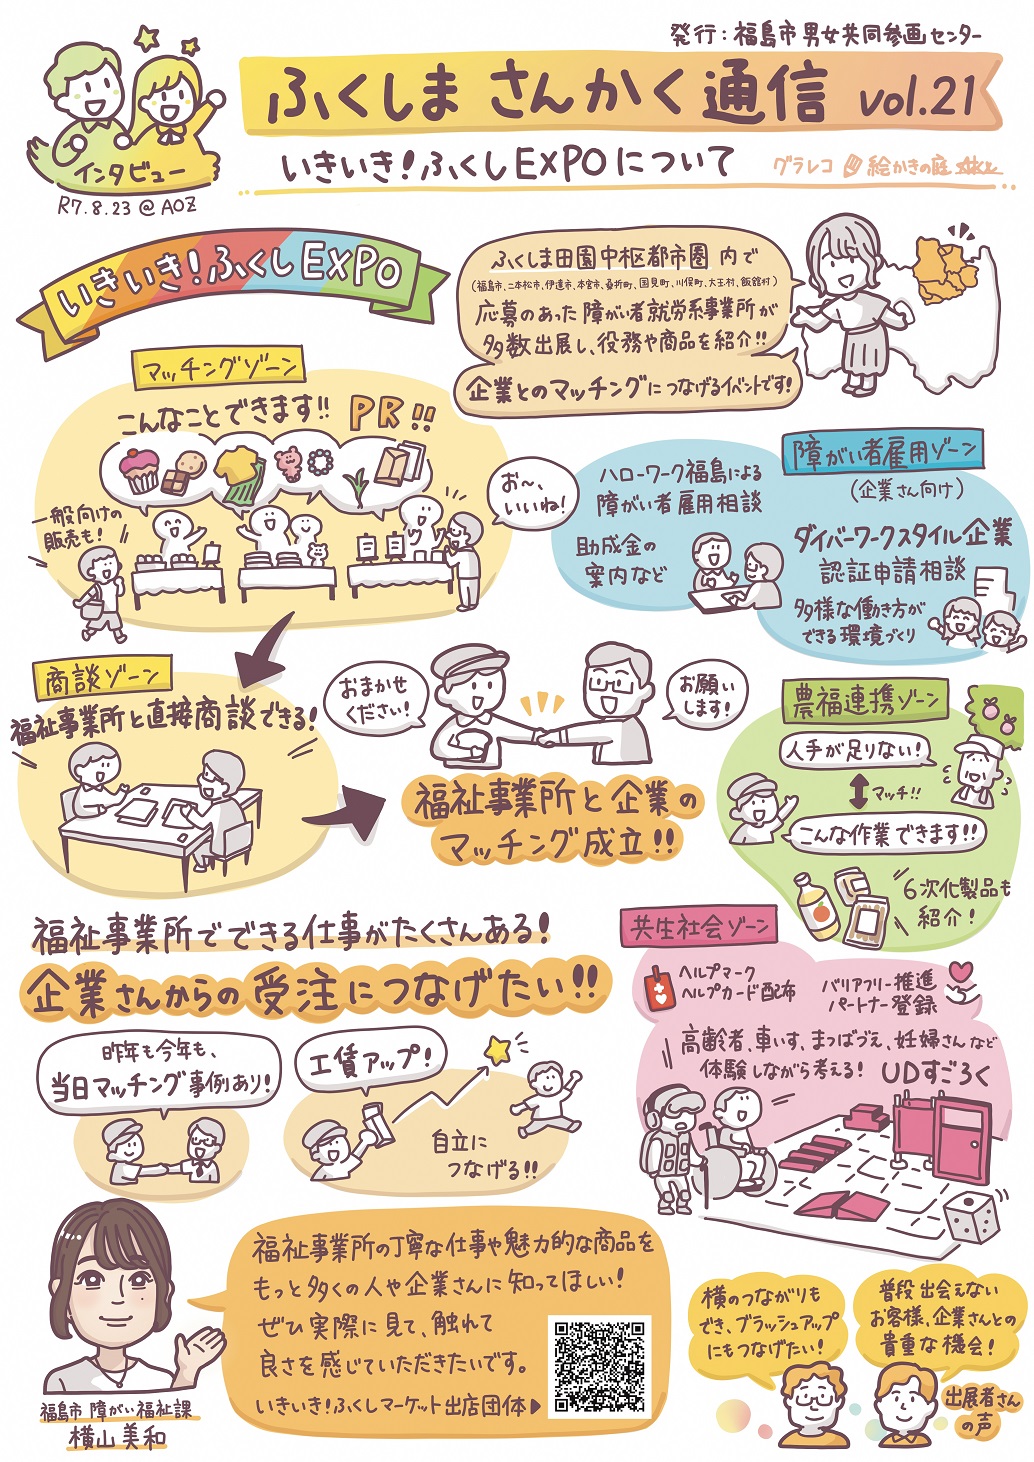 発行：福島市男女共同参画センター
ふくしま さんかく 通信 vol.21
いきいき！ふくしEXPOについて
グラレコ 絵かきの庭
インタビュー
R7.8.23 @ AOZ
いきいき！ふくしEXPO
ふくしま田園中枢都市圏 内で
（福島市、二本松市、伊達市、本宮市、桑折町、国見町、川俣町、大玉村、飯舘村）
応募のあった 障がい者就労系事業所が
多数出展し、役務や商品を紹介!!
企業とのマッチングにつなげるイベントです！
マッチングゾーン
こんなことできます!! PR!!
一般向けの
販売も！
お〜、
いいね！
障がい者雇用ゾーン
（企業さん向け）
ハローワーク福島による
障がい者 雇用相談
助成金の
案内など
ダイバーワークスタイル企業
認証申請相談
多様な働き方が
できる環境づくり
商談ゾーン
福祉事業所と直接商談できる！
おまかせ
ください！
お願い
します！
福祉事業所と企業の
マッチング成立!!
農福連携ゾーン
人手が足りない！
マッチ!!
こんな作業できます!!
6次化製品も
紹介！
福祉事業所でできる仕事がたくさんある！
企業さんからの受注につなげたい!!
昨年も今年も、
当日マッチング事例あり！
工賃アップ！
自立に
つなげる!!
共生社会ゾーン
ヘルプマーク
ヘルプカード配布
バリアフリー推進
パートナー登録
高齢者、車いす、まつばづえ、妊婦さんなど
体験しながら考える！ UDすごろく
福祉事業所の丁寧な仕事や魅力的な商品を
もっと多くの人や企業さんに知ってほしい！
ぜひ実際に見て、触れて
良さを感じていただきたいです。
いきいき！ふくしマーケット出店団体▶
福島市 障がい福祉課
横山 美和
横のつながりも
でき、ブラッシュアップ
にもつなげたい！
普段出会えない
お客様、企業さんとの
貴重な機会！
出展者さん
の声